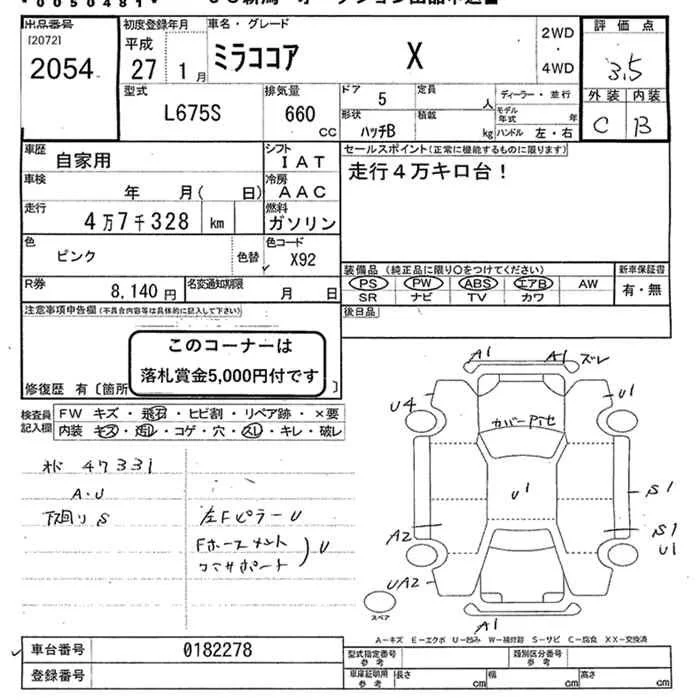 0050481
出品番号
[2072]
2054
初度登録年月
平成
27 1月
車名・グレード
ミラココア X
2WD
・
4WD
評価点
3.5
外装 内装
C B
型式
L675S
排気量
660
cc
ドア
5
定員
人
ディーラー・並行
形状
ハッチB
積載
kg
モデル年式
年
ハンドル 左・右
車歴
自家用
シフト
IAT
車検
年 月( 日)
冷房
AAC
走行
4万7千328 km
燃料
ガソリン
色
ピンク
色替
色コード
X92
R券
8,140円
名変通知期限
月 日
セールスポイント(正常に機能するものに限ります)
走行4万キロ台!
装備品 (純正品に限り○をつけてください)
PS PW ABS エアB AW
SR ナビ TV カワ
新車保証書
有・無
後日品
注意事項申告欄(不具合内容等は具体的に記入して下さい)
このコーナーは
落札賞金5,000円付です
修復歴 有〔箇所 〕
検査員記入欄
FW キズ・飛石・ヒビ割・リペア跡・×要
内装 キズ・汚れ・コゲ・穴・スレ・キレ・破レ
47331
A・U
下回り S
左Fピラー U
U
A1 A1 ズレ
U4 U1
U1
S1
A2 S1
U1
UA2
A1
スペア
A－キズ E－エクボ U－凹み W－補修跡 S－サビ C－腐食 XX－交換済
車台番号
0182278
登録番号
型式指定番号
参考
類別区分番号
参考
車庫証明用
参考
長さ cm
幅 cm
高さ cm